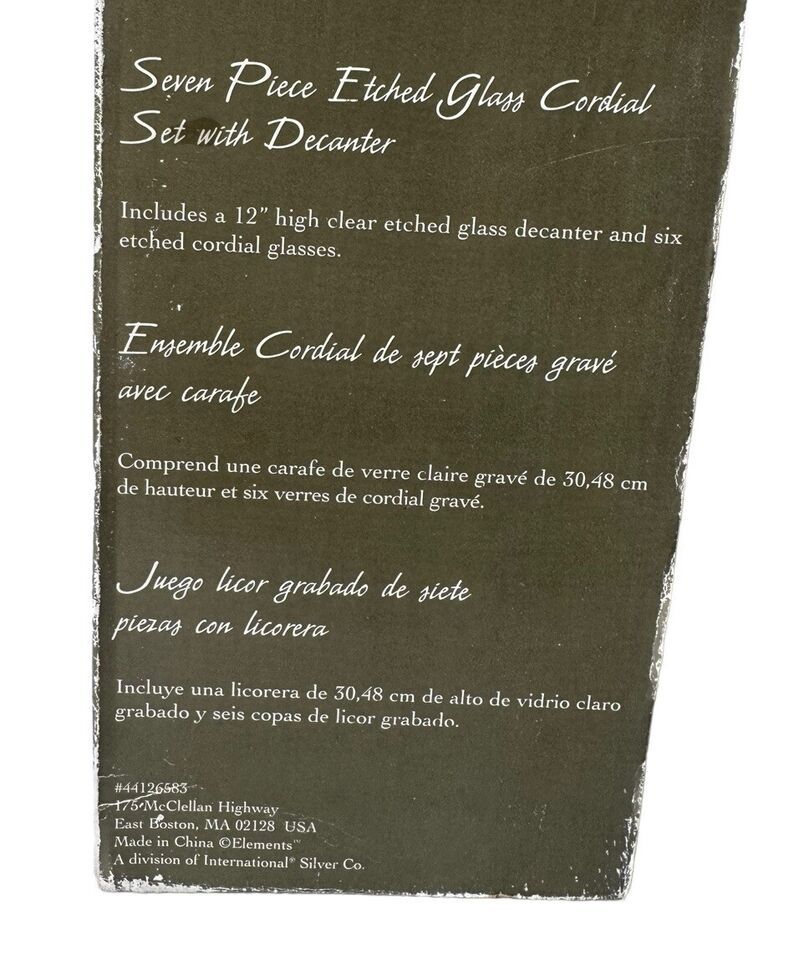 Seven Piece Etched Glass Cordial
Set with Decanter
Includes a 12” high clear etched glass decanter and six
etched cordial glasses.
Ensemble Cordial de sept pièces gravé
avec carafe
Comprend une carafe de verre claire gravé de 30,48 cm
de hauteur et six verres de cordial gravé.
Juego licor grabado de siete
piezas con licorera
Incluye una licorera de 30,48 cm de alto de vidrio claro
grabado y seis copas de licor grabado.
#44126583
175 McClellan Highway
East Boston, MA 02128 USA
Made in China ©Elements™
A division of International® Silver Co.